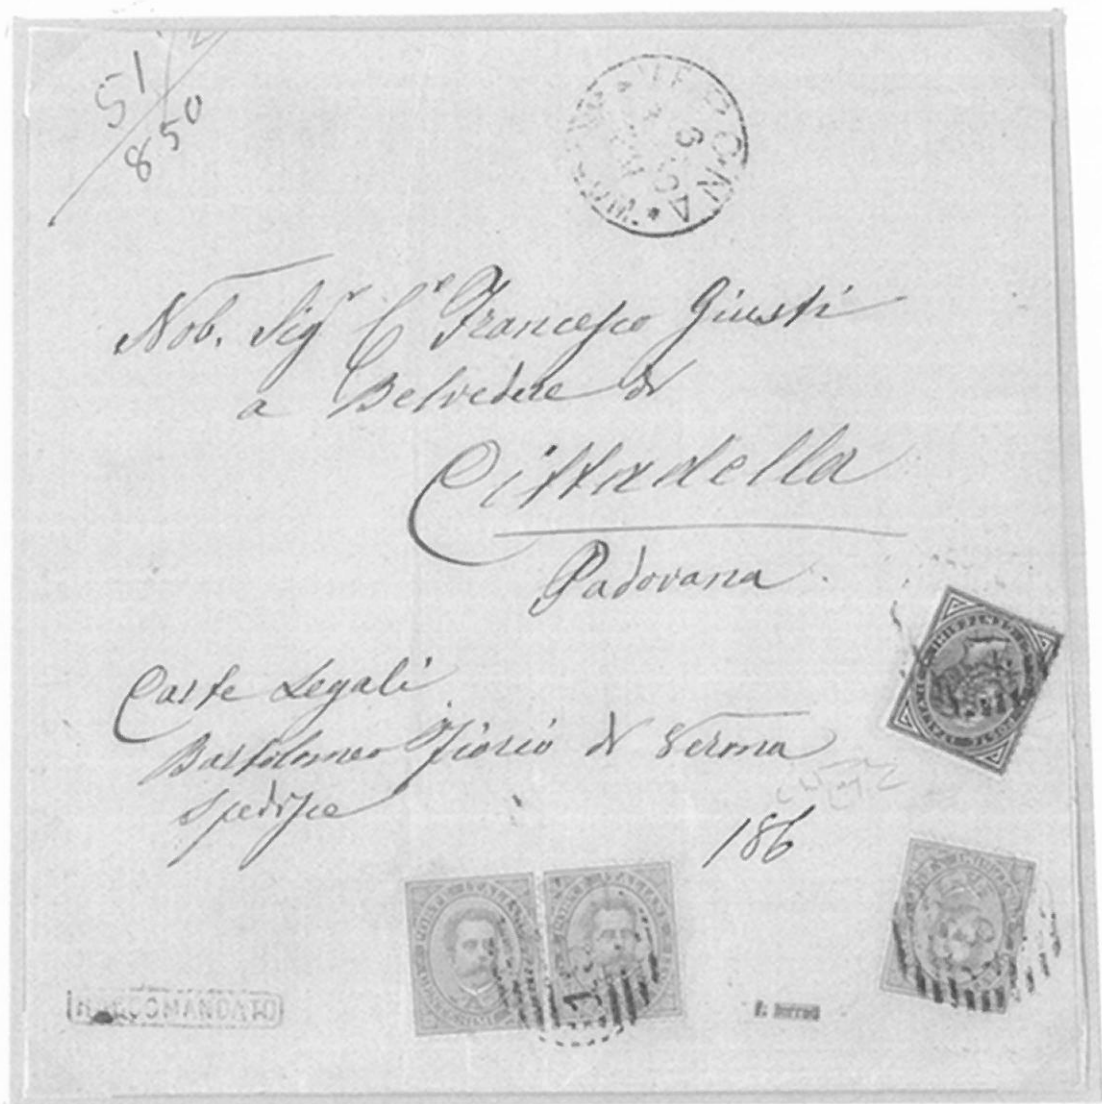 51
850
VERONA
Nob. Sigr Ce Francesco Giusti
a Belvedere di
Cittadella
Padovana
Carte Legali
Bartolomeo Fiorio di Verona
spedisce
186
RACCOMANDATO